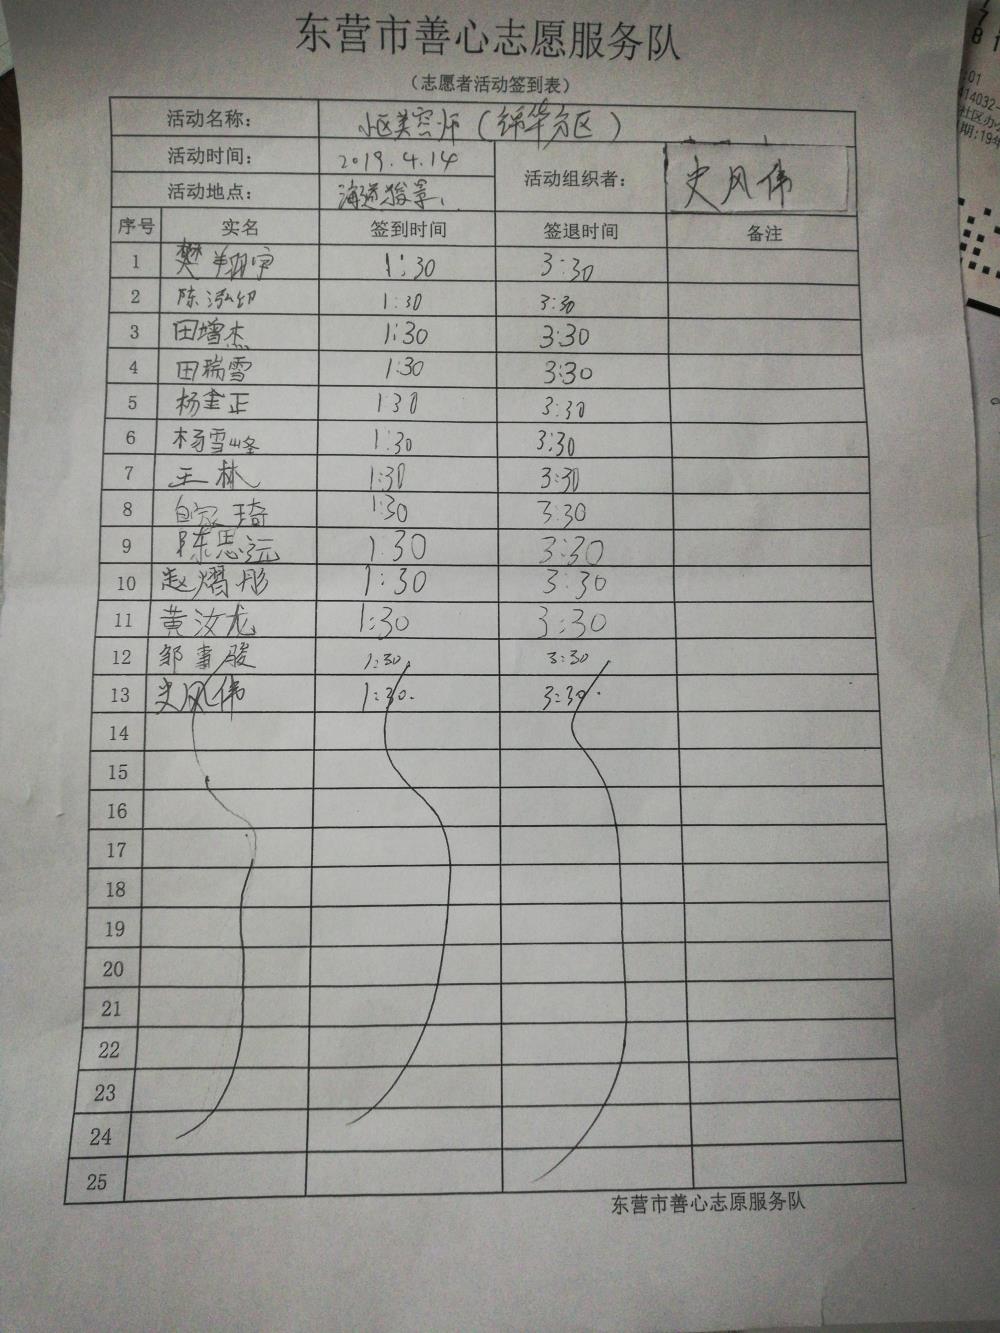 东营市善心志愿服务队
（志愿者活动签到表）
活动名称： 小区美容师（锦华分区）
活动时间： 2019.4.14
活动组织者： 史风伟
活动地点： 海通骏景
序号 实名 签到时间 签退时间 备注
1 樊翔宇 1:30 3:30
2 陈泓 1:30 3:30
3 田增杰 1:30 3:30
4 田瑞雪 1:30 3:30
5 杨奎正 1:30 3:30
6 杨雪峰 1:30 3:30
7 王林 1:30 3:30
8 琦 1:30 3:30
9 陈思远 1:30 3:30
10 赵熠彤 1:30 3:30
11 黄汝龙 1:30 3:30
12 邹骏 1:30 3:30
13 史风伟 1:30 3:30
14
15
16
17
18
19
20
21
22
23
24
25
东营市善心志原服务队
7
8
:01
14032-
社区办
期:19年